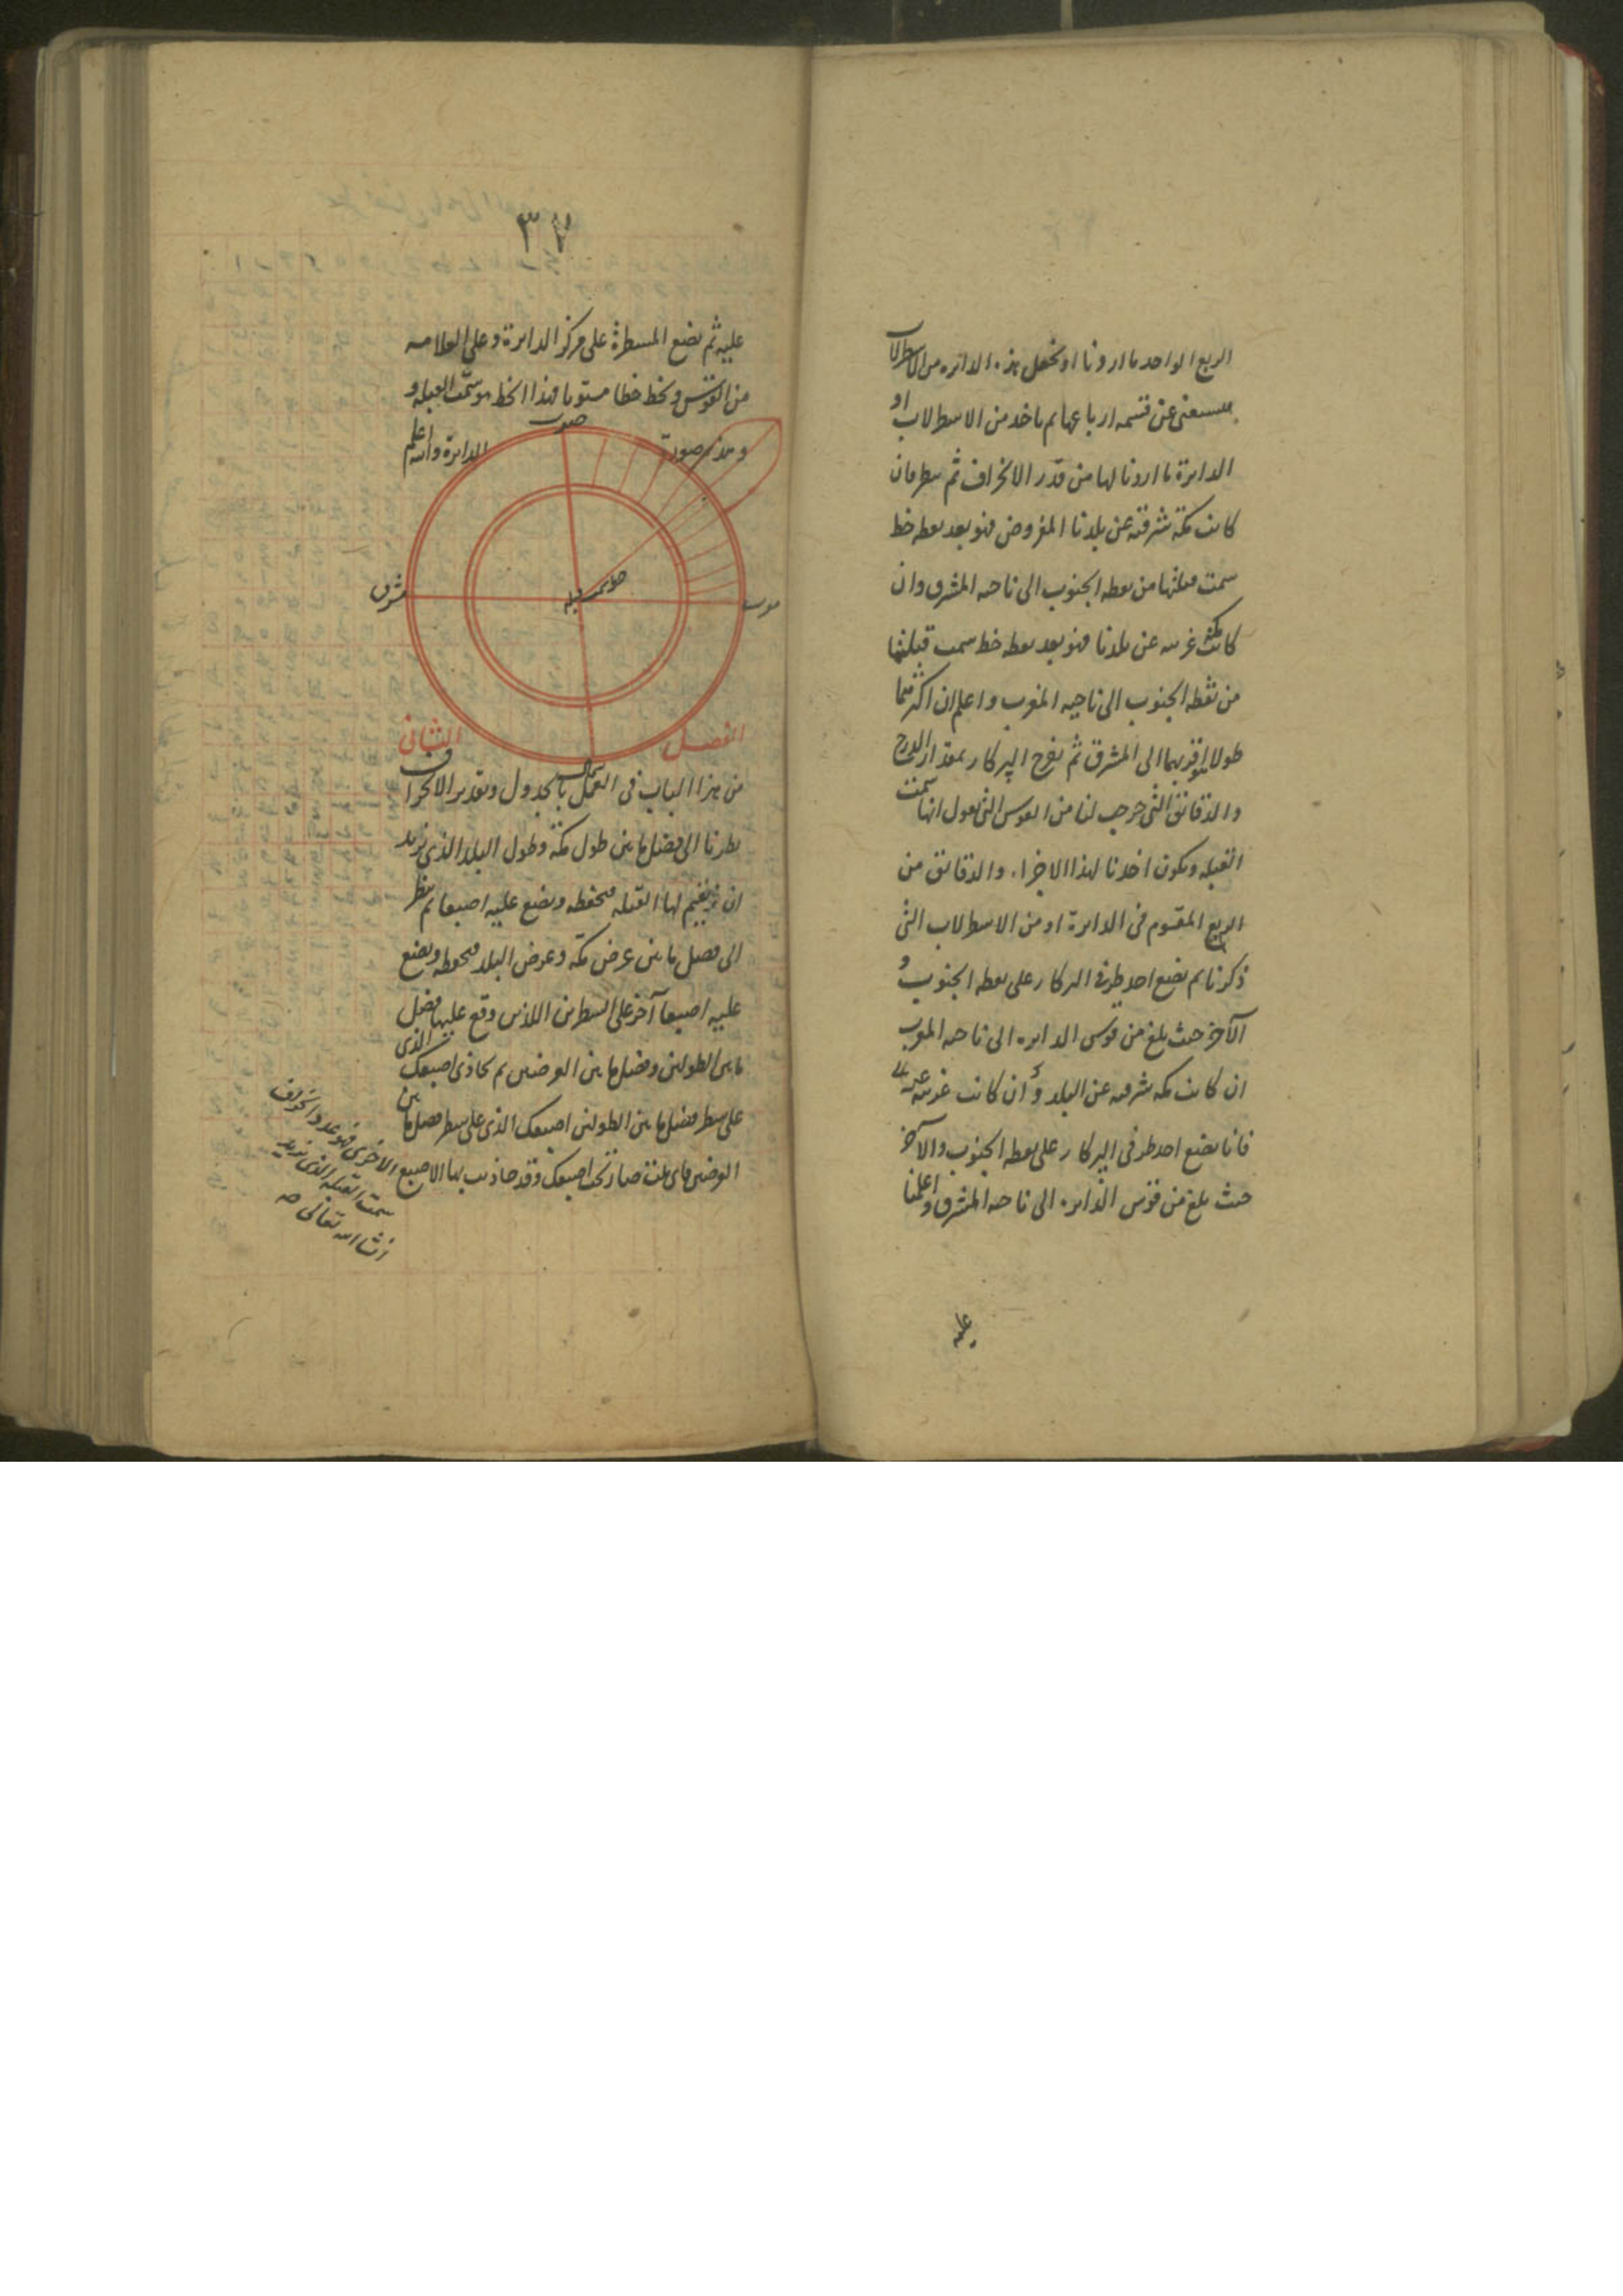 الربع الواحد ما اردنا او نجعل هذه الدائرة من الاسطرلاب
فنستغنى عن قسمة ارباعها ثم ناخذ من الاسطرلاب او
الدائرة ما اردنا لها من قدر الانحراف ثم ننظر فان
كانت مكة شرقية عن بلدنا المفروض فهو بعد نقطة خط
سمت قبلتها من نقطة الجنوب الى ناحية المشرق وان
كانت مكة غربية عن بلدنا فهو بعد نقطة خط سمت قبلتها
من نقطة الجنوب الى ناحية المغرب واعلم ان اكثرهما
طولا اقربهما الى المشرق ثم نفتح البركار بمقدار الدرج
والدقائق التى خرجت لنا من القوس التى نقول انها سمت
القبلة ويكون اخذنا لهذا الاجزاء والدقائق من
الربع المقسوم فى الدايرة او من الاسطرلاب التى
ذكرنا ثم نضع احد طرفى البركار على نقطة الجنوب و
الآخر حيث بلغ من قوس الدايره الى ناحية المغرب
ان كانت مكه شرقيه عن البلد و ان كانت غربية عنه
فانا نضع احد طرفى البركار على نقطة الجنوب والآخر
حيث بلغ من قوس الدايره الى ناحية المشرق واعلمنا
عليه
٣٧
عليه ثم نضع المسطرة على مركز الدايرة وعلى العلامه
من القوس ونخط خطا مستويا فهذا الخط هو سمت القبله و
وهذه صورة الدايرة والله اعلم
جنوب
مشرق
خط سمت قبله
مغرب
شمال
الفصل الثانى
من هذا الباب فى العمل بالجدول وتقدير الانحراف
نظرنا الى فضل ما بين طول مكة وطول البلد الذى نريد
ان نقيم لها القبله فنحفظه ونضع عليه اصبعا ثم ننظر
الى فضل ما بين عرض مكه وعرض البلد فنحفظه ونضع
عليه اصبعا آخر على السطرين اللذين وقع عليها فضل
ما بين الطولين وفضل ما بين العرضين ثم تحاذى اصبعك الذى
على سطر فضل ما بين الطولين اصبعك الذى على سطر فضل ما بين
العرضين فاى بيت صار تحت اصبعك وقد حاذيت بها الاصبع الاخرى فهو عدد انحراف
سمت القبله الذى نريد
انشاالله تعالى